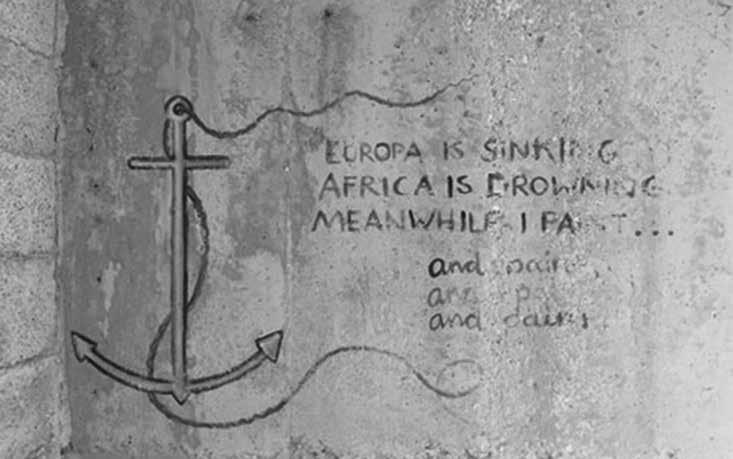 EUROPA IS SINKING
AFRICA IS DROWNING
MEANWHILE I PAINT...
and paint
and
and